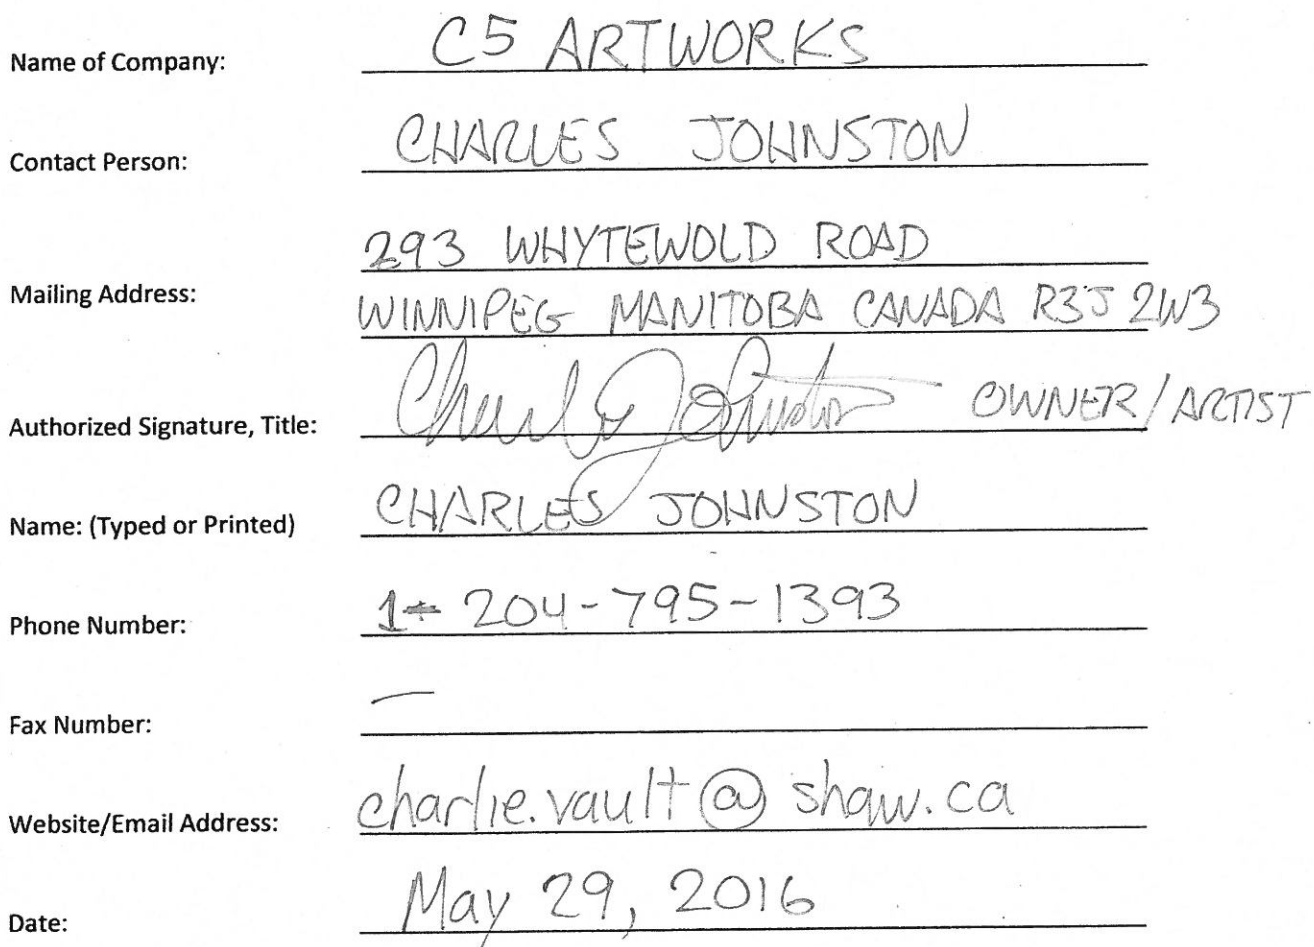 Name of Company: C5 ARTWORKS
Contact Person: CHARLES JOHNSTON
293 WHYTEWOLD ROAD
Mailing Address: WINNIPEG MANITOBA CANADA R3J 2W3
Authorized Signature, Title: Charles Johnston OWNER/ARTIST
Name: (Typed or Printed) CHARLES JOHNSTON
Phone Number: 1- 204-795-1393
Fax Number: —
Website/Email Address: charlie.vault@shaw.ca
Date: May 29, 2016